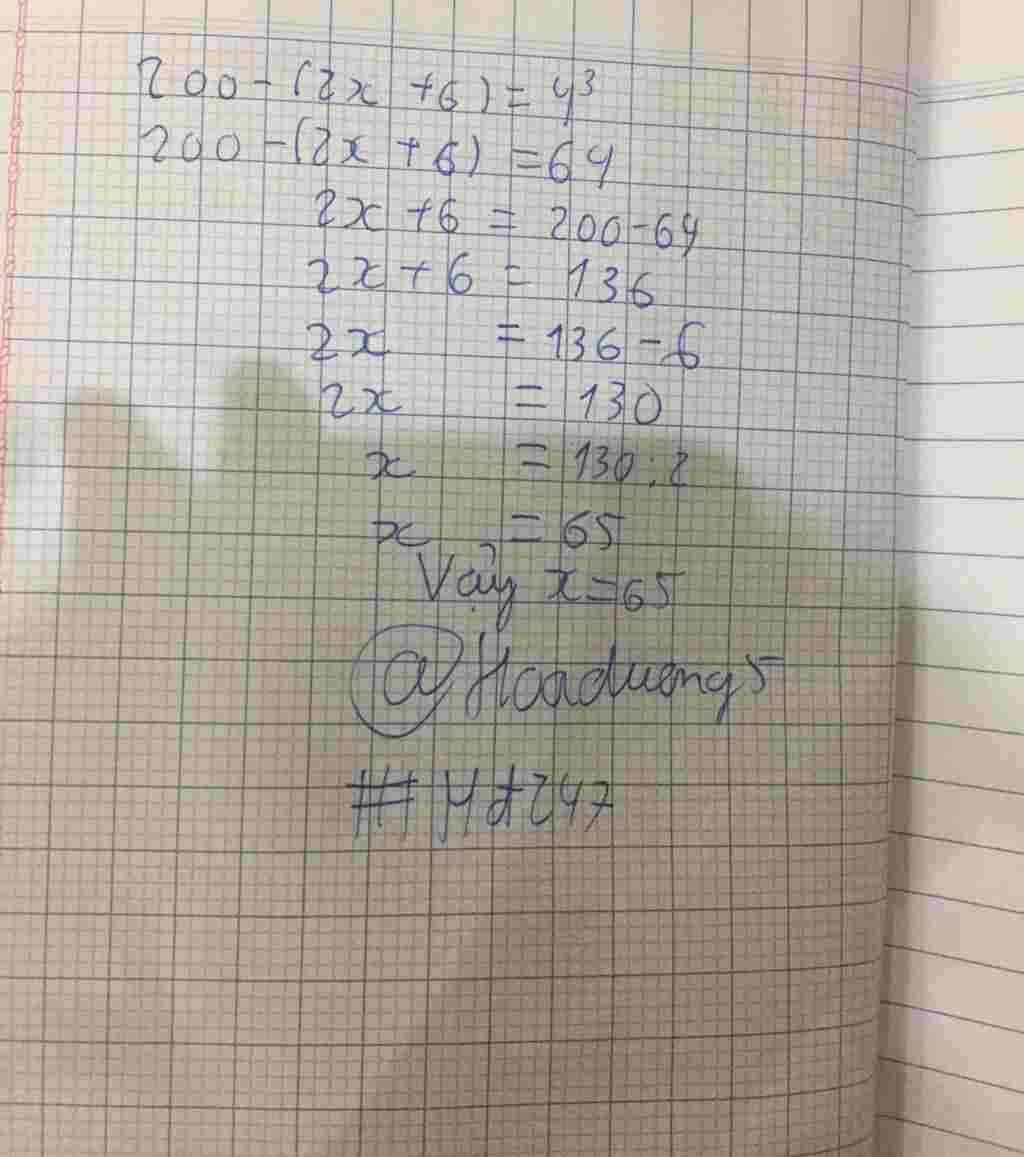 200 - (2x + 6) = 4³
200 - (2x + 6) = 64
2x + 6 = 200 - 64
2x + 6 = 136
2x = 136 - 6
2x = 130
x = 130 : 2
x = 65
Vậy x = 65
@Hoaduong5
# Hd247